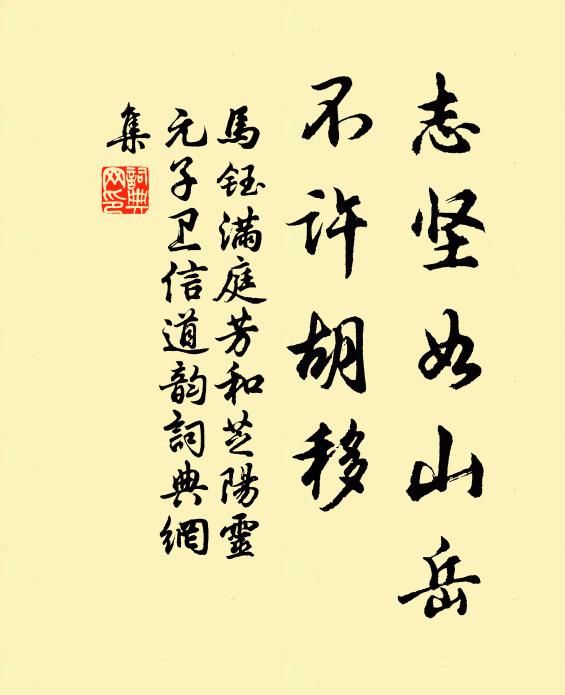 志坚如山岳
不许胡移
馬鈺满庭芳和芝陽靈
元子卫信道韵詞典網
集
詞典
网印